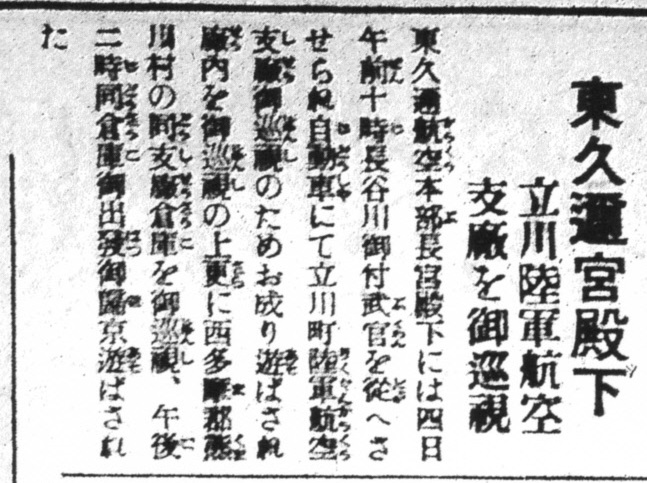 東久邇宮殿下
立川陸軍航空
支廠を御巡視
東久邇航空本部長宮殿下には四日
午前十時長谷川御付武官を従へさ
せられ自動車にて立川町陸軍航空
支廠御巡視のためお成り遊ばされ
廠内を御巡視の上更に西多摩郡熊
川村の同支廠倉庫を御巡視、午後
二時同倉庫御出発御帰京遊ばされ
た